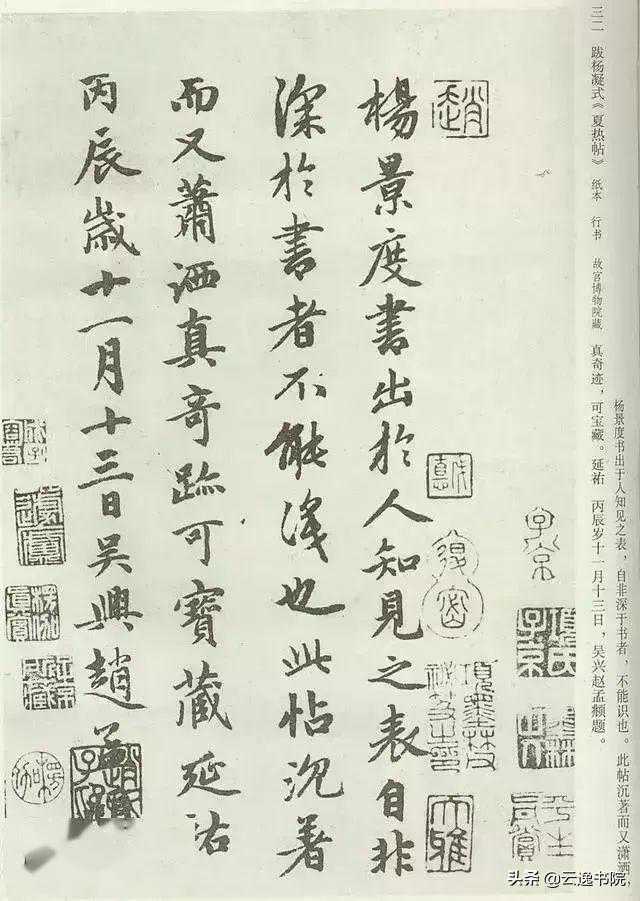 三二 跋杨凝式《夏热帖》 纸本 行书 故宫博物院藏
杨景度书出于人知见之表，自非深于书者，不能识也。此帖沉著而又潇洒，
真奇迹，可宝藏。延祐 丙辰岁十一月十三日，吴兴赵孟頫题。
趙
楊景度書出於人知見之表自非
深於書者不能識也此帖沉著
而又蕭洒真奇跡可寶藏延祐
丙辰歲十一月十三日吳興趙孟
子京
大雅
头条 @云逸书院